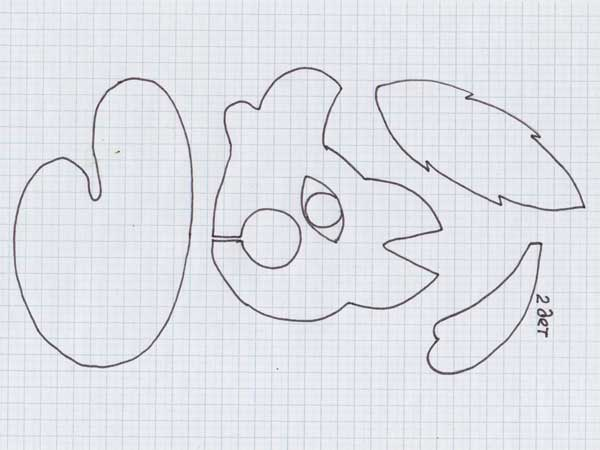 2 дет